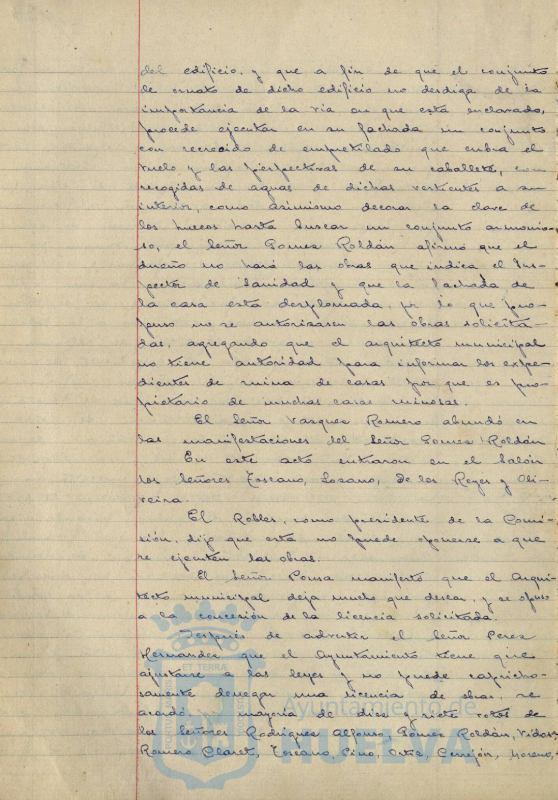 del edificio, y que a fin de que el conjunto
de ornato de dicho edificio no desdiga de la
importancia de la via en que está enclavado,
procede ejecutar en su fachada un conjunto
con recrecido de empretilado que cubra el
vuelo y las perpectivas de su caballete, con
recogidas de aguas de dichas vertientes a su
interior, como asimismo decorar la clave de
los huecos hasta buscar un conjunto armonio-
so, el Señor Gomez Roldán afirmó que el
dueño no hará las obras que indica el Ins-
pector de Sanidad y que la fachada de
la casa está desplomada, por lo que pro-
puso no se autorizasen las obras solicita-
das, agregando que el arquitecto municipal
no tiene autoridad para informar los expe-
dientes de ruina de casas por que es pro-
pietario de muchas casas ruinosas.
El Señor Vazquez Romero abundó en
las manifestaciones del Señor Gomez Roldán
En este acto entraron en el Salón
los Señores Toscano, Lozano, De los Reyes y Oli-
veira.
El Robles, como presidente de la Comi-
sión, dijo que esta no puede oponerse a que
se ejecuten las obras.
El Señor Ponsa manifestó que el Arqui-
tecto municipal deja mucho que desear, y se opuso
a la concesión de la licencia solicitada.
Después de advertir el Señor Perez
Hernandez que el Ayuntamiento tiene que
ajustarse a las leyes y no puede capricho-
samente denegar una licencia de obras, se
acordó, mayoria de diez y siete votos de
los Señores Rodriguez Alfonso, Gomez Roldán, Vidosz
Romero Claret, Toscano, Pino, Ortiz, Cerrejón, Moreno,
ET TERRA
Ayuntamiento de
HUELVA